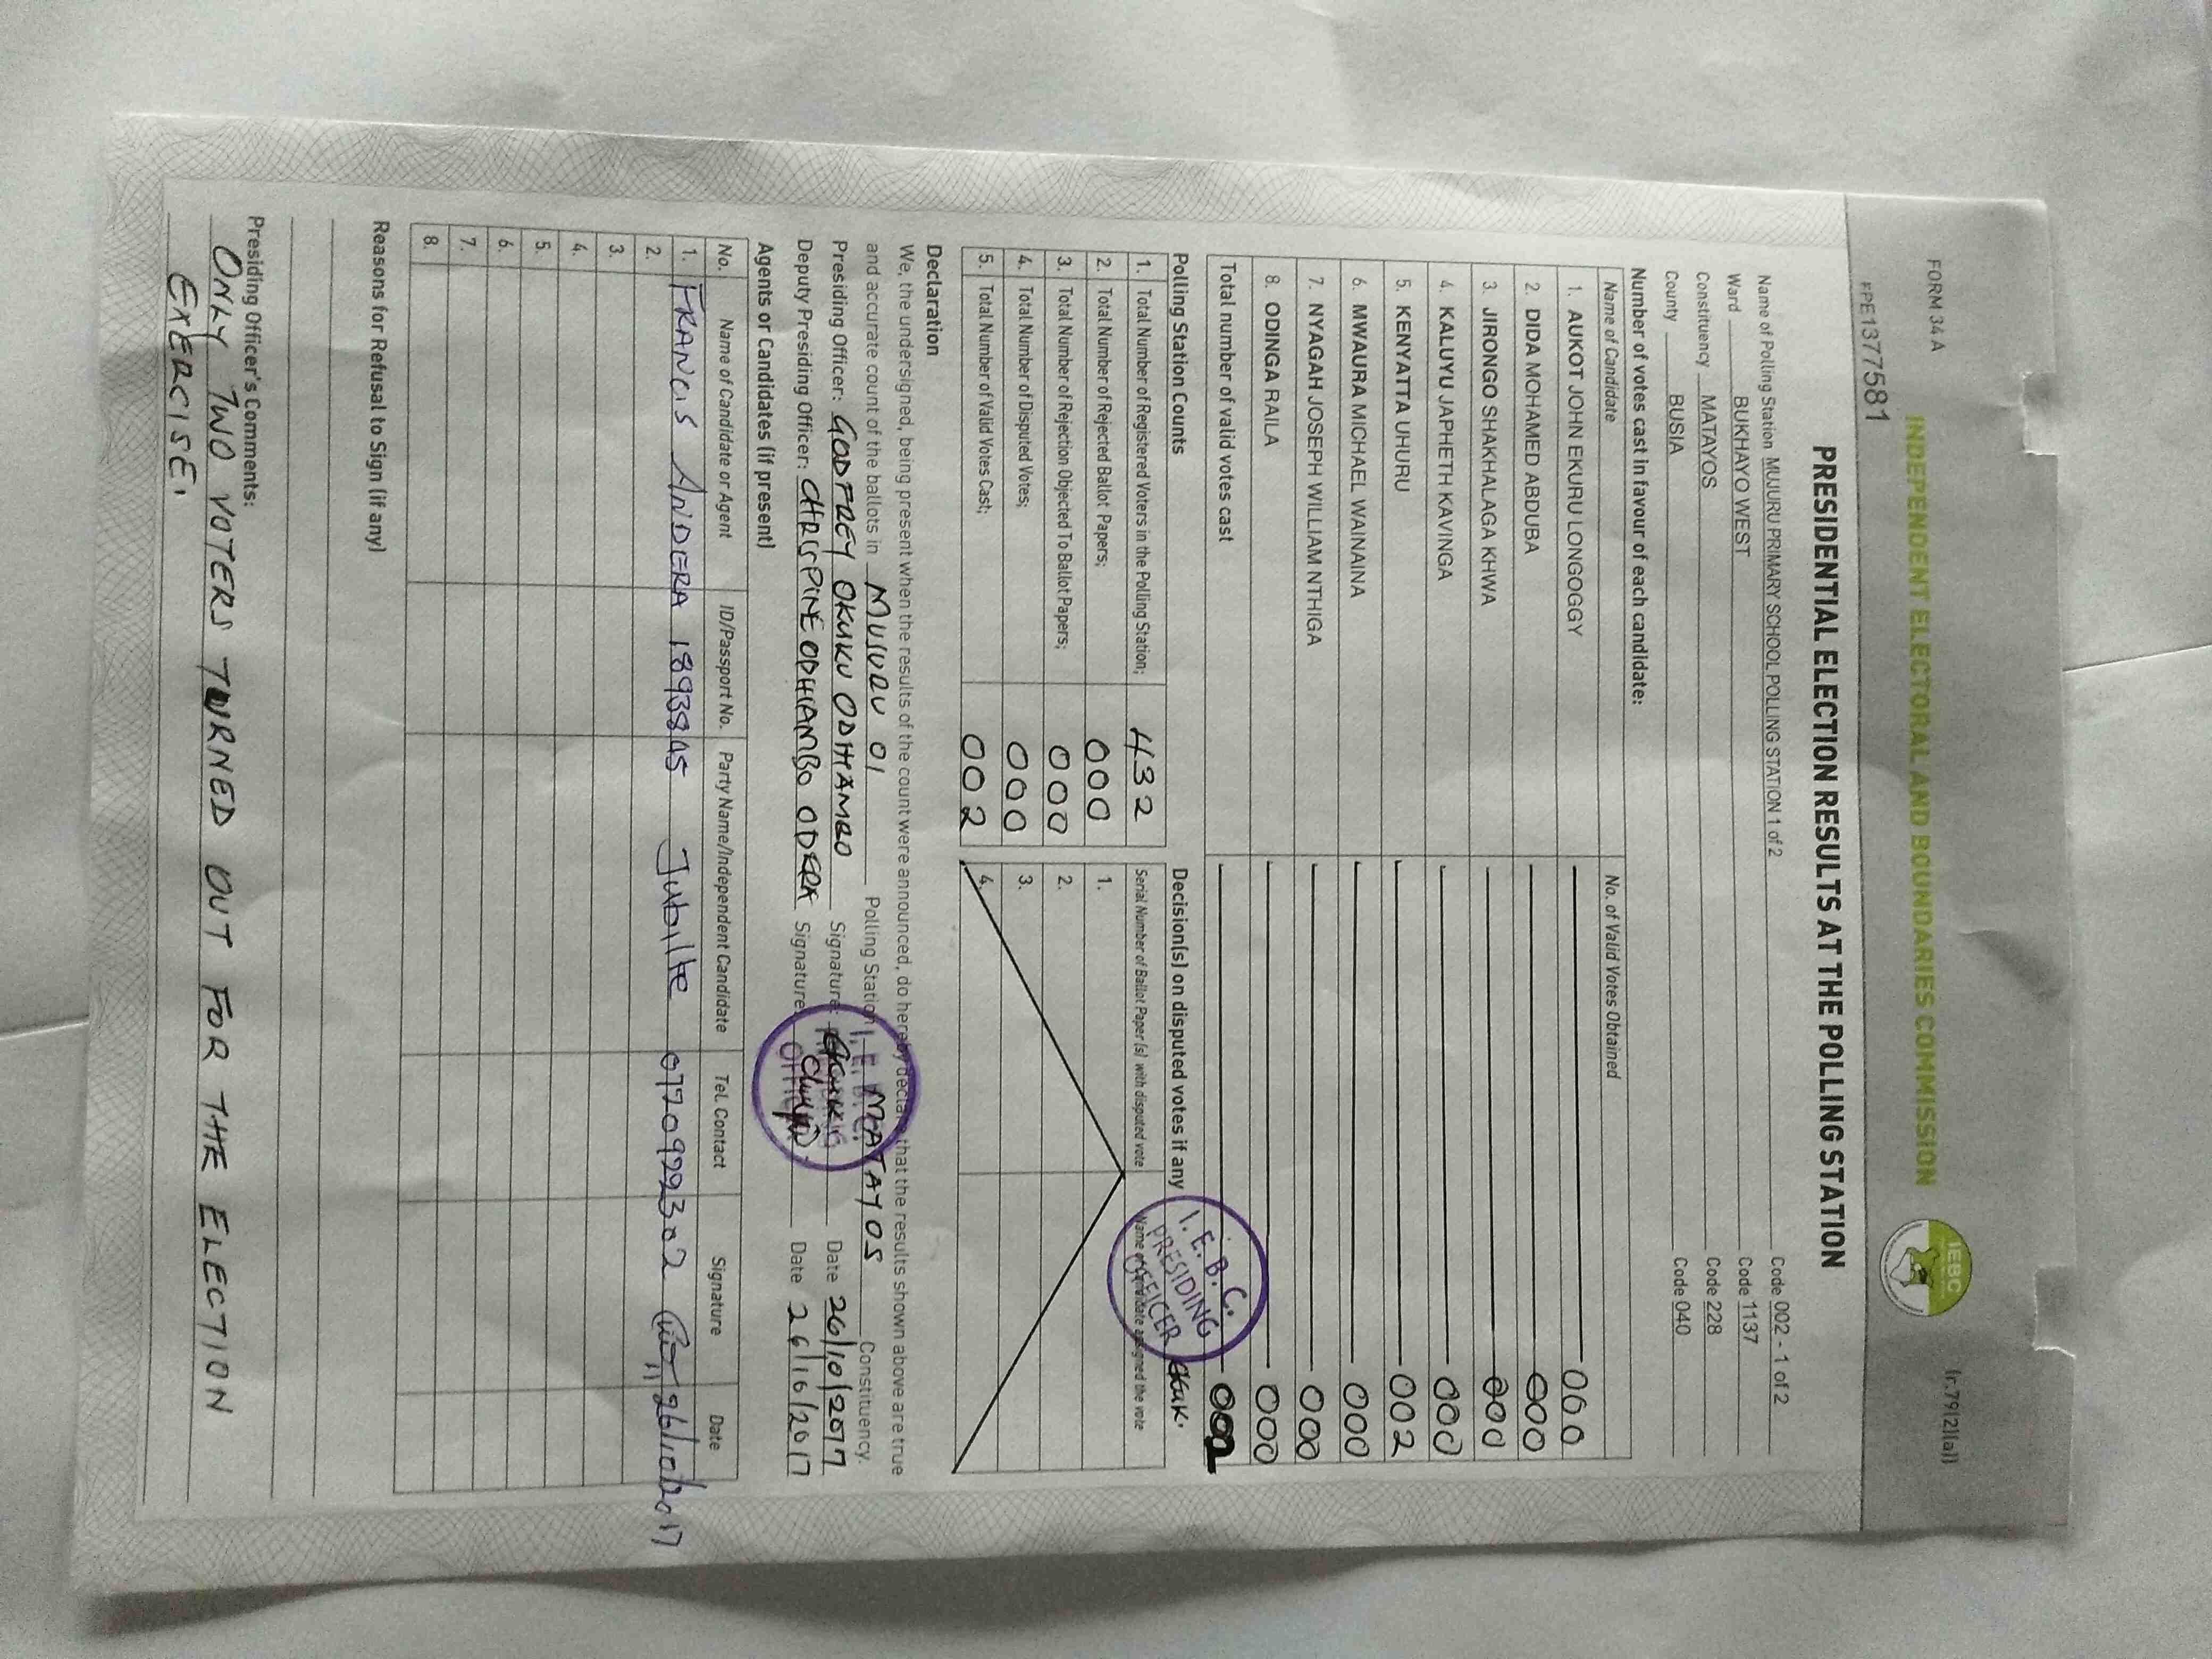 FORM 34 A
(r.79(2)(a))
INDEPENDENT ELECTORAL AND BOUNDARIES COMMISSION
IEBC
PPE1377581
PRESIDENTIAL ELECTION RESULTS AT THE POLLING STATION
Name of Polling Station MUJURU PRIMARY SCHOOL POLLING STATION 1 of 2 Code 002 - 1 of 2
Ward BUKHAYO WEST Code 1137
Constituency MATAYOS Code 228
County BUSIA Code 040
Number of votes cast in favour of each candidate:
Name of Candidate No. of Valid Votes Obtained
1. AUKOT JOHN EKURU LONGOGGY 000
2. DIDA MOHAMED ABDUBA 000
3. JIRONGO SHAKHALAGA KHWA 000
4. KALUYU JAPHETH KAVINGA 000
5. KENYATTA UHURU 002
6. MWAURA MICHAEL WAINAINA 000
7. NYAGAH JOSEPH WILLIAM NTHIGA 000
8. ODINGA RAILA 000
Total number of valid votes cast 002
I. E. B. C. PRESIDING OFFICER
Polling Station Counts
1. Total Number of Registered Voters in the Polling Station; 432
2. Total Number of Rejected Ballot Papers; 000
3. Total Number of Rejection Objected To Ballot Papers; 000
4. Total Number of Disputed Votes; 000
5. Total Number of Valid Votes Cast; 002
Decision(s) on disputed votes if any
Serial Number of Ballot Paper (s) with disputed vote Name of candidate assigned the vote
1.
2.
3.
4.
Declaration
We, the undersigned, being present when the results of the count were announced, do hereby declare that the results shown above are true
and accurate count of the ballots in MUJURU 01 Polling Station MATAYOS Constituency.
Presiding Officer: GODFREY OKUKU ODHIAMBO Signature: Date 26/10/2017
Deputy Presiding Officer: CHRISPINE ODHIAMBO ODERA Signature Date 26/10/2017
Agents or Candidates (if present)
No. Name of Candidate or Agent ID/Passport No. Party Name/Independent Candidate Tel. Contact Signature Date
1. FRANCIS ANDERA 18938845 Jubilee 0770992302 26/10/2017
2.
3.
4.
5.
6.
7.
8.
Reasons for Refusal to Sign (if any)
Presiding Officer's Comments:
ONLY TWO VOTERS TURNED OUT FOR THE ELECTION
EXERCISE.